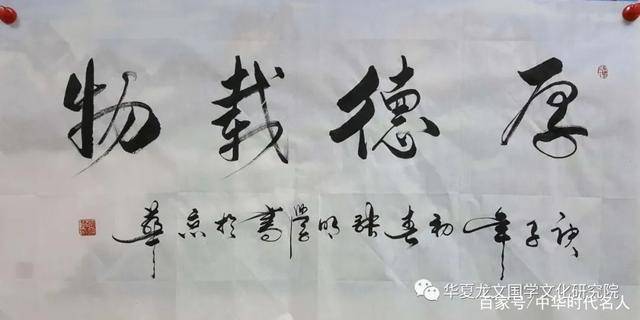 厚德載物
庚子年初春張明學書於京華
华夏龙文国学文化研究院
百家号/中华时代名人